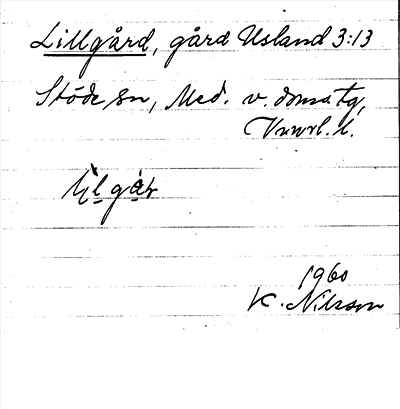 Lillgård, gård Usland 3:13
Stöde sn, Med. v. doms. tg,
Vnrl. l.
lìlgár
1960
K. Nilsson